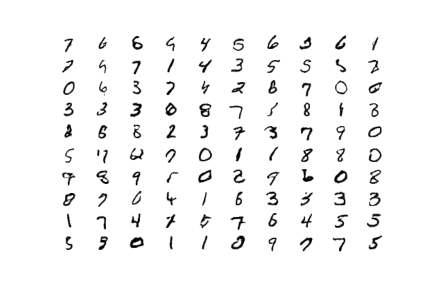 7 6 6 9 4 5 6 5 6 1
7 9 7 1 4 3 5 5 5 2
0 6 3 7 4 2 8 7 0 0
3 3 3 0 8 7 5 8 1 8
8 6 8 2 3 7 3 7 9 0
5 17 2 7 0 1 1 8 8 0
9 8 9 5 0 2 9 6 0 8
8 7 6 4 1 6 3 3 3 3
1 7 4 7 5 7 6 4 5 5
5 9 0 1 1 0 9 7 7 5